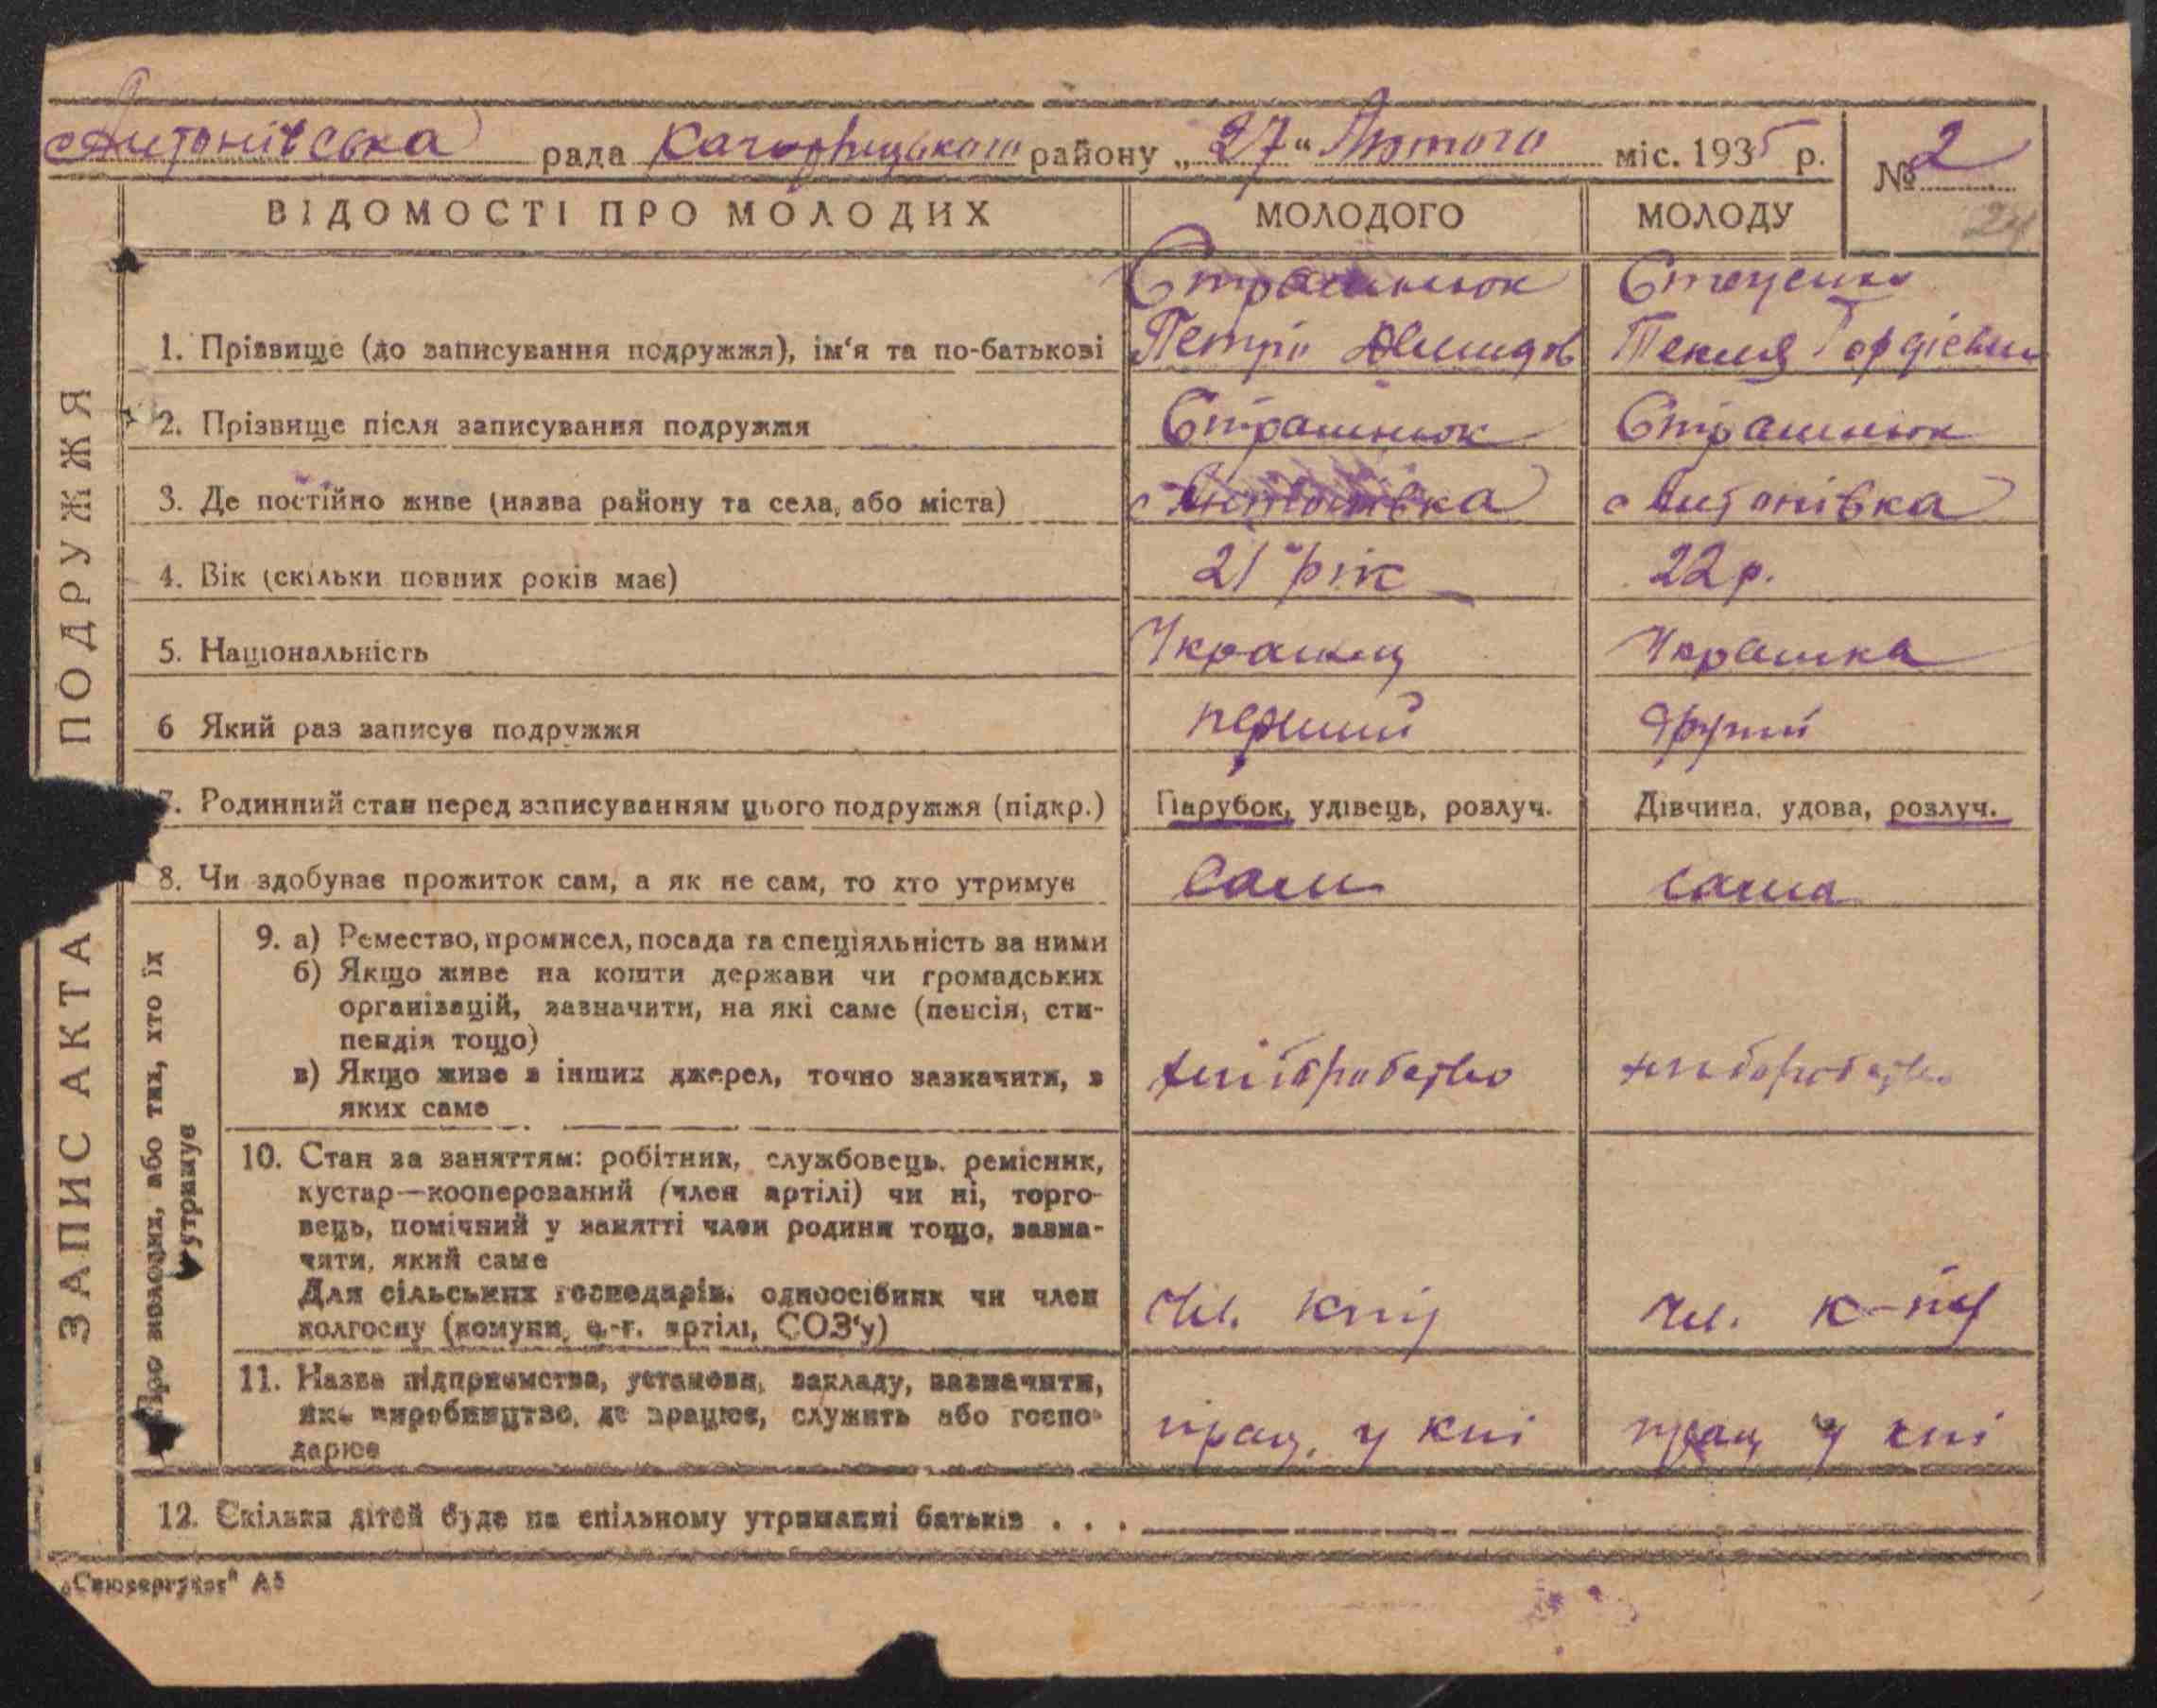 Антонівська рада района „27“ Лютого міс. 1935 р. № 2
24
ВІДОМОСТІ ПРО МОЛОДИХ МОЛОДОГО МОЛОДУ
Страшнюк Стеценко
1. Прізвище (до записування подружжя), ім‘я та по-батькові Петро Демидов Текля Гордієвна
2. Прізвище після записування подружжя Страшнюк Страшнюк
3. Де постійно живе (назва району та села, або міста) с Антонівка с Антонівка
4. Вік (скільки повних років має) 21 рік 22 р.
5. Національність
6 Який раз записує подружжя перший другий
7. Родинний стан перед записуванням цього подружжя (підкр.) Парубок, удівець, розлуч. Дівчина, удова, розлуч.
8. Чи здобуває прожиток сам, а як не сам, то хто утримує сам сама
9. а) Ремество, промисел, посада та спеціяльність за ними
б) Якщо живе на кошти держави чи громадських
організацій, зазначити, на які саме (пенсія, сти-
пендія тощо)
в) Якщо живе з інших джерел, точно зазначити, з хліборобство хліборобство
яких саме
10. Стан за заняттям: робітник, службовець, ремісник,
кустар—кооперований (член артілі) чи ні, торго-
вець, помічний у занятті член родини тощо, зазна-
чити, який саме
Для сільських господарів, одноосібник чи член чл. чл.
колгоспу (комуни, с.-г. артілі, СОЗ‘у)
11. Назва підприємства, установи, закладу, зазначити,
яке виробництво, де працює, служить або госпо- прац. у кпі прац у кпі
дарює
12. Скільки дітей буде на спільному утриманні батьків . . .
ЗАПИС АКТА ПОДРУЖЖЯ
Про молодих, або тих, хто їх
утримує
А5